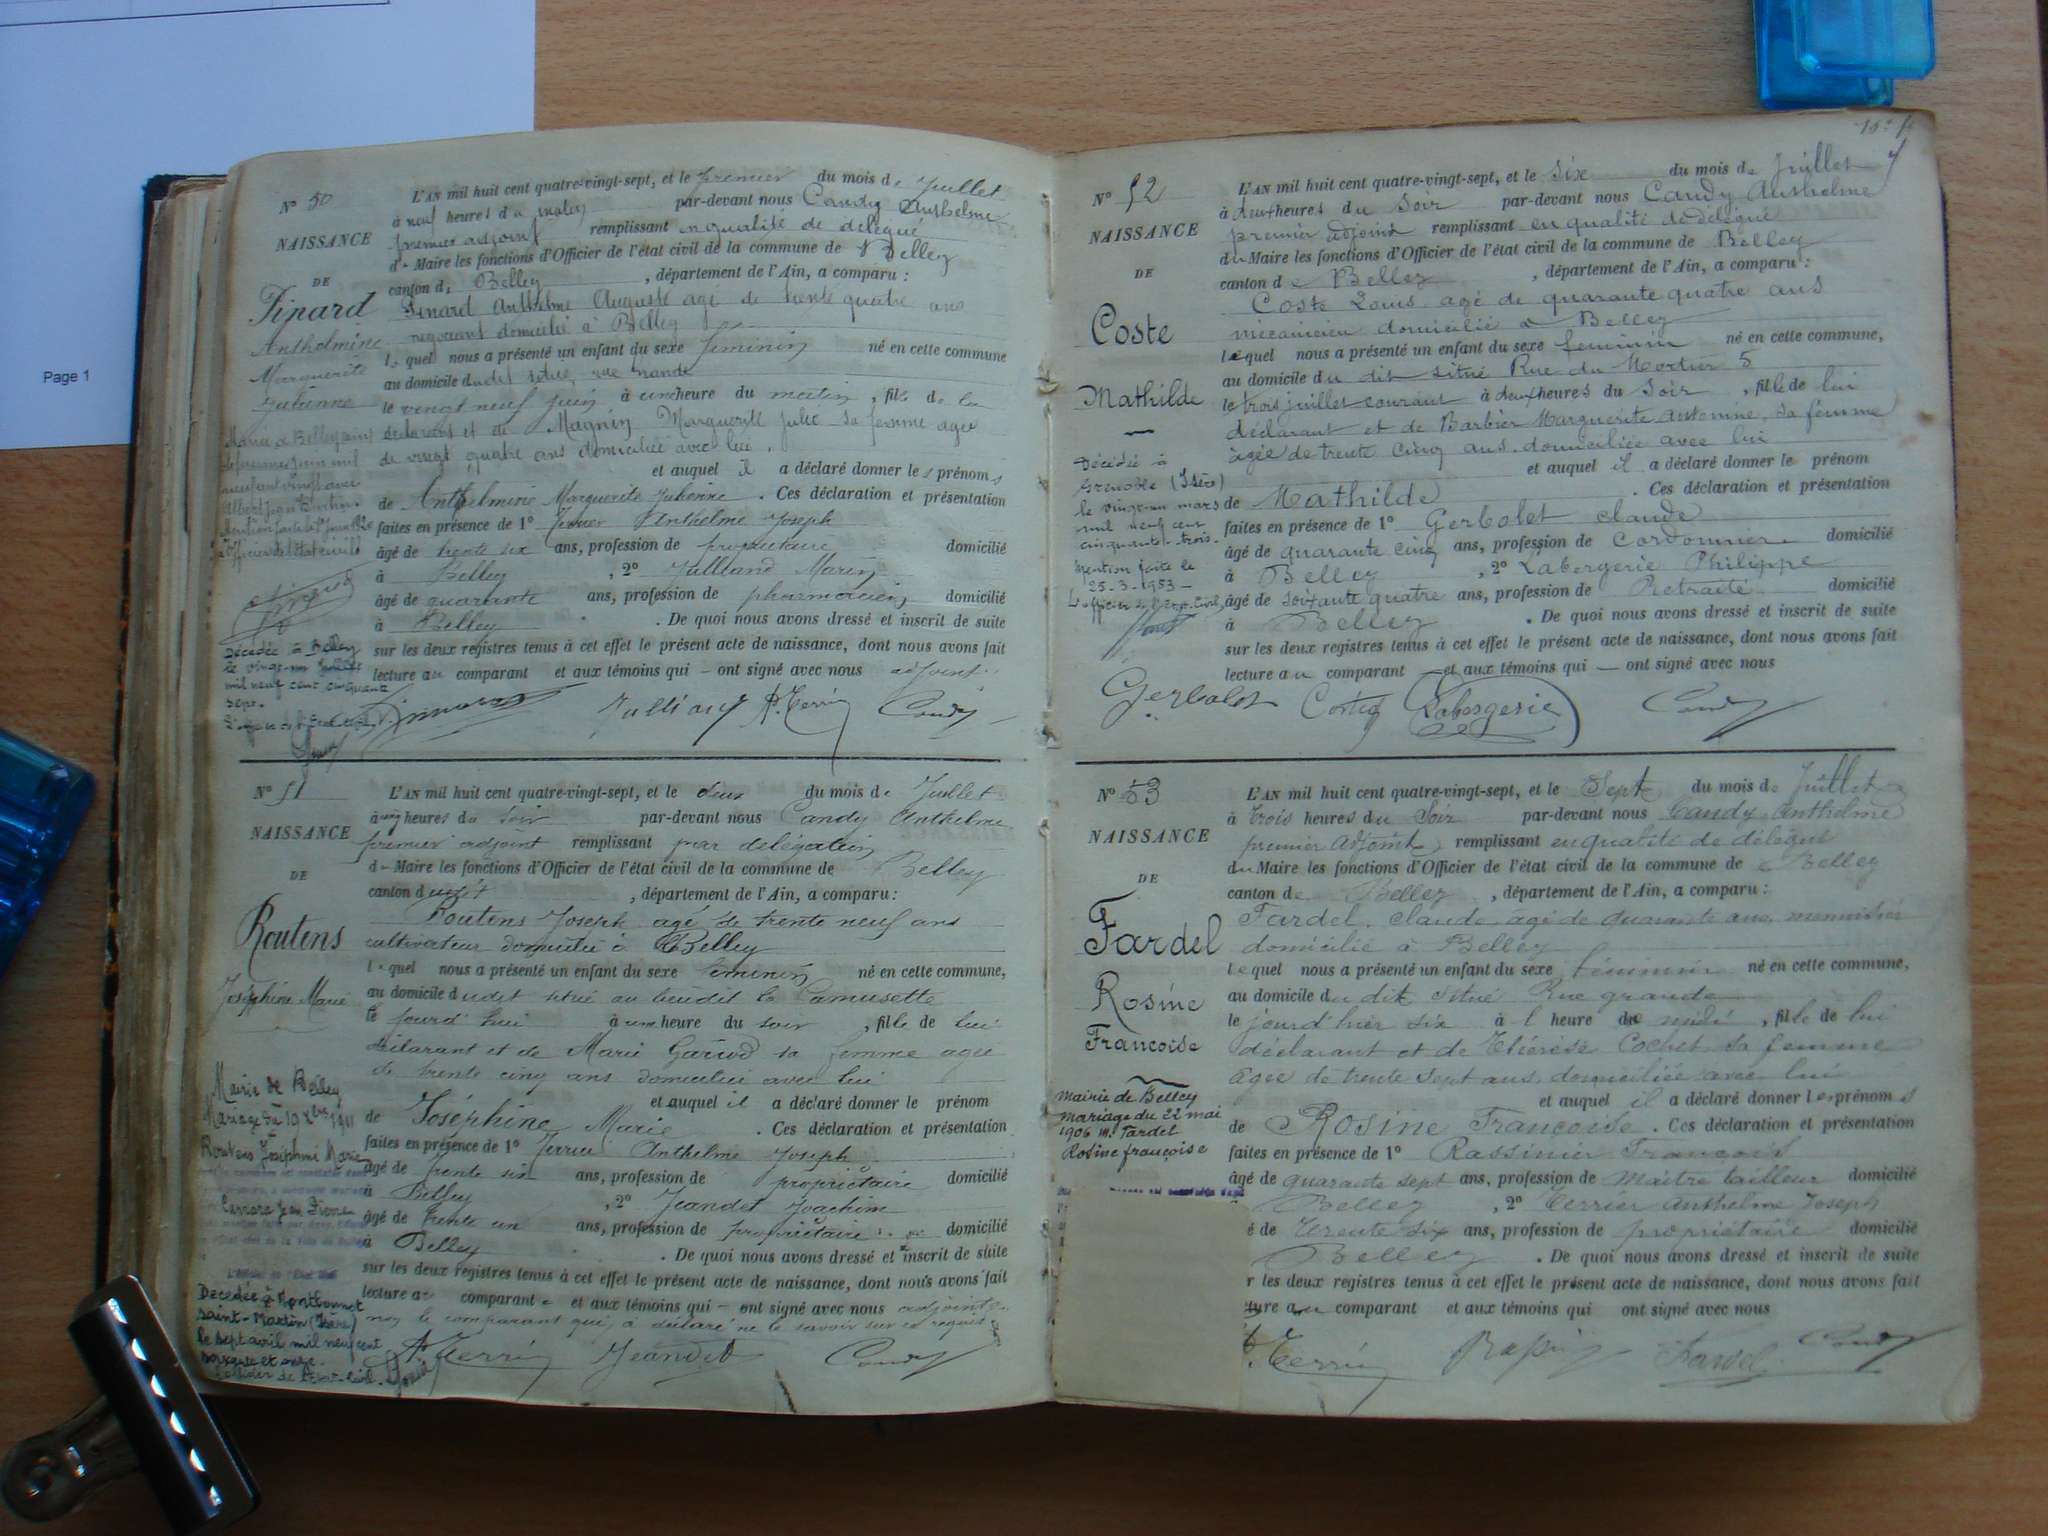 Page 1
N° 50
NAISSANCE
DE
Pinard
Anthelmine
Marguerite
Julienne
L'AN mil huit cent quatre-vingt-sept, et le premier du mois de Juillet
à neuf heures du matin par-devant nous Candy Anthelme
premier adjoint remplissant en qualité de délégué
du Maire les fonctions d'Officier de l'état civil de la commune de Belley
canton de Belley, département de l'Ain, a comparu :
Pinard Anthelme Auguste agé de trente quatre ans
négociant domicilié à Belley
lequel nous a présenté un enfant du sexe féminin né en cette commune
au domicile dudit situé, rue
le vingt neuf juin à une heure du matin, fille de lui
déclarant et de Magnin Marguerite Julie sa femme agée
de vingt quatre ans domiciliée avec lui.
et auquel il a déclaré donner les prénoms
de Anthelmine Marguerite Julienne. Ces déclaration et présentation
faites en présence de 1° Terrier Anthelme Joseph
âgé de trente six ans, profession de propriétaire domicilié
à Belley, 2° Julliand Marin
âgé de quarante ans, profession de pharmacien domicilié
à Belley. De quoi nous avons dressé et inscrit de suite
sur les deux registres tenus à cet effet le présent acte de naissance, dont nous avons fait
lecture au comparant et aux témoins qui — ont signé avec nous adjoint.
Décédée à Belley
le vingt-un
mil neuf cent cinquante
sept.
Julliand A. Terrier Candy
N° 51
NAISSANCE
DE
Routens
Joséphine Marie
L'AN mil huit cent quatre-vingt-sept, et le deux du mois de Juillet
à cinq heures du soir par-devant nous Candy Anthelme
premier adjoint remplissant par délégation
du Maire les fonctions d'Officier de l'état civil de la commune de Belley
canton dudit, département de l'Ain, a comparu :
Routens Joseph agé de trente neuf ans
cultivateur domicilié à Belley
lequel nous a présenté un enfant du sexe féminin né en cette commune,
au domicile dudit situé au lieudit la Camusette
le jourd'hui à une heure du soir, fille de lui
déclarant et de Marie sa femme agée
de trente cinq ans domiciliée avec lui
et auquel il a déclaré donner le prénom
de Joséphine Marie. Ces déclaration et présentation
faites en présence de 1° Terrier Anthelme Joseph
âgé de trente six ans, profession de propriétaire domicilié
à Belley, 2° Jeandet Joachim
âgé de trente un ans, profession de propriétaire domicilié
à Belley. De quoi nous avons dressé et inscrit de suite
sur les deux registres tenus à cet effet le présent acte de naissance, dont nous avons fait
lecture au comparant et aux témoins qui — ont signé avec nous adjoint
non le comparant qui a déclaré ne le savoir sur ce requis
A. Terrier Jeandet Candy
Mairie de Belley
Mariage du 10 Xbre 1911
Routens Joséphine Marie
Décédée à Montbonnot
Saint-Martin (Isère)
le sept avril mil neuf cent
soixante et onze.
l'officier de l'état-civil.
N° 52
NAISSANCE
DE
Coste
Mathilde
L'AN mil huit cent quatre-vingt-sept, et le six du mois de Juillet
à deux heures du Soir par-devant nous Candy Anthelme
premier adjoint remplissant en qualité de délégué
du Maire les fonctions d'Officier de l'état civil de la commune de Belley
canton de Belley, département de l'Ain, a comparu :
Coste Louis agé de quarante quatre ans
mécanicien domicilié à Belley
lequel nous a présenté un enfant du sexe féminin né en cette commune,
au domicile du dit situé Rue du Mortier 5
le trois juillet courant à deux heures du Soir, fille de lui
déclarant et de Barbier Marguerite Antoinne, sa femme
âgée de trente cinq ans domiciliée avec lui
et auquel il a déclaré donner le prénom
de Mathilde. Ces déclaration et présentation
faites en présence de 1° Gerbolet claude
âgé de quarante cinq ans, profession de Cordonnier domicilié
à Belley, 2° Labergerie Philippe
âgé de soixante quatre ans, profession de Retraité domicilié
à Belley. De quoi nous avons dressé et inscrit de suite
sur les deux registres tenus à cet effet le présent acte de naissance, dont nous avons fait
lecture au comparant et aux témoins qui — ont signé avec nous
Décédée à
Grenoble (Isère)
le vingt-un mars
mil neuf cent
cinquante-trois.
Mention faite le
25-3-1953 —
L'officier de l'état civil,
Gerbolet Labergerie Candy
N° 53
NAISSANCE
DE
Fardel
Rosine
Françoise
L'AN mil huit cent quatre-vingt-sept, et le Sept du mois de Juillet
à trois heures du Soir par-devant nous Candy Anthelme
premier adjoint remplissant en qualité de délégué
du Maire les fonctions d'Officier de l'état civil de la commune de Belley
canton de Belley, département de l'Ain, a comparu :
Fardel claude âgé de quarante ans menuisier
domicilié à Belley
lequel nous a présenté un enfant du sexe féminin né en cette commune,
au domicile du dit situé Rue grande
le jourd'hier six à 1 heure de midi, fille de lui
déclarant et de Thérèse Cochet sa femme
âgée de trente sept ans domiciliée avec lui
et auquel il a déclaré donner les prénoms
de Rosine Françoise. Ces déclaration et présentation
faites en présence de 1° Rassinier François
âgé de quarante sept ans, profession de Maître tailleur domicilié
Belley, 2° Terrier Anthelme Joseph
é de Trente six ans, profession de propriétaire domicilié
Belley. De quoi nous avons dressé et inscrit de suite
r les deux registres tenus à cet effet le présent acte de naissance, dont nous avons fait
ture au comparant et aux témoins qui ont signé avec nous
mairie de Belley
mariage du 22 mai
1906 m. Fardel
Rosine françoise
Terrier Fardel Candy